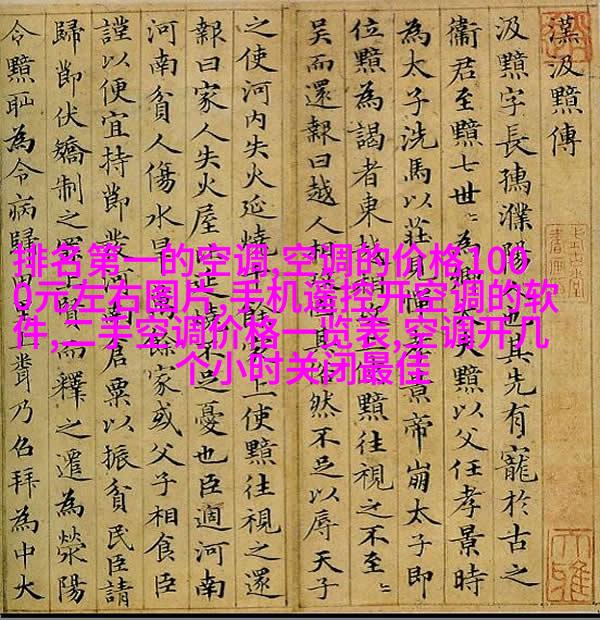 漢汲黯傳
汲黯字長孺濮陽也其先有寵於古之
衞君至黯七世〻為卿大夫黯以父任孝景時
為太子洗馬以莊見憚孝景帝崩太子即
位黯為謁者東越相攻使黯往視之不至〻
吳而還報曰越人相攻其俗然不足以辱天子
之使河內失火延燒千餘家上使黯往視之還
報曰家人失火屋比延燒不足憂也臣過河南
河南貧人傷水旱萬餘家或父子相食臣
謹以便宜持節發河南倉粟以振貧民臣請
歸節伏矯制之罪上賢而釋之遷為滎陽
令黯恥為令病歸田里上聞乃召拜為中大
排名第一的空调,空调的价格100
0元左右图片,手机遥控开空调的软
件,二手空调价格一览表,空调开几
个小时关闭最佳